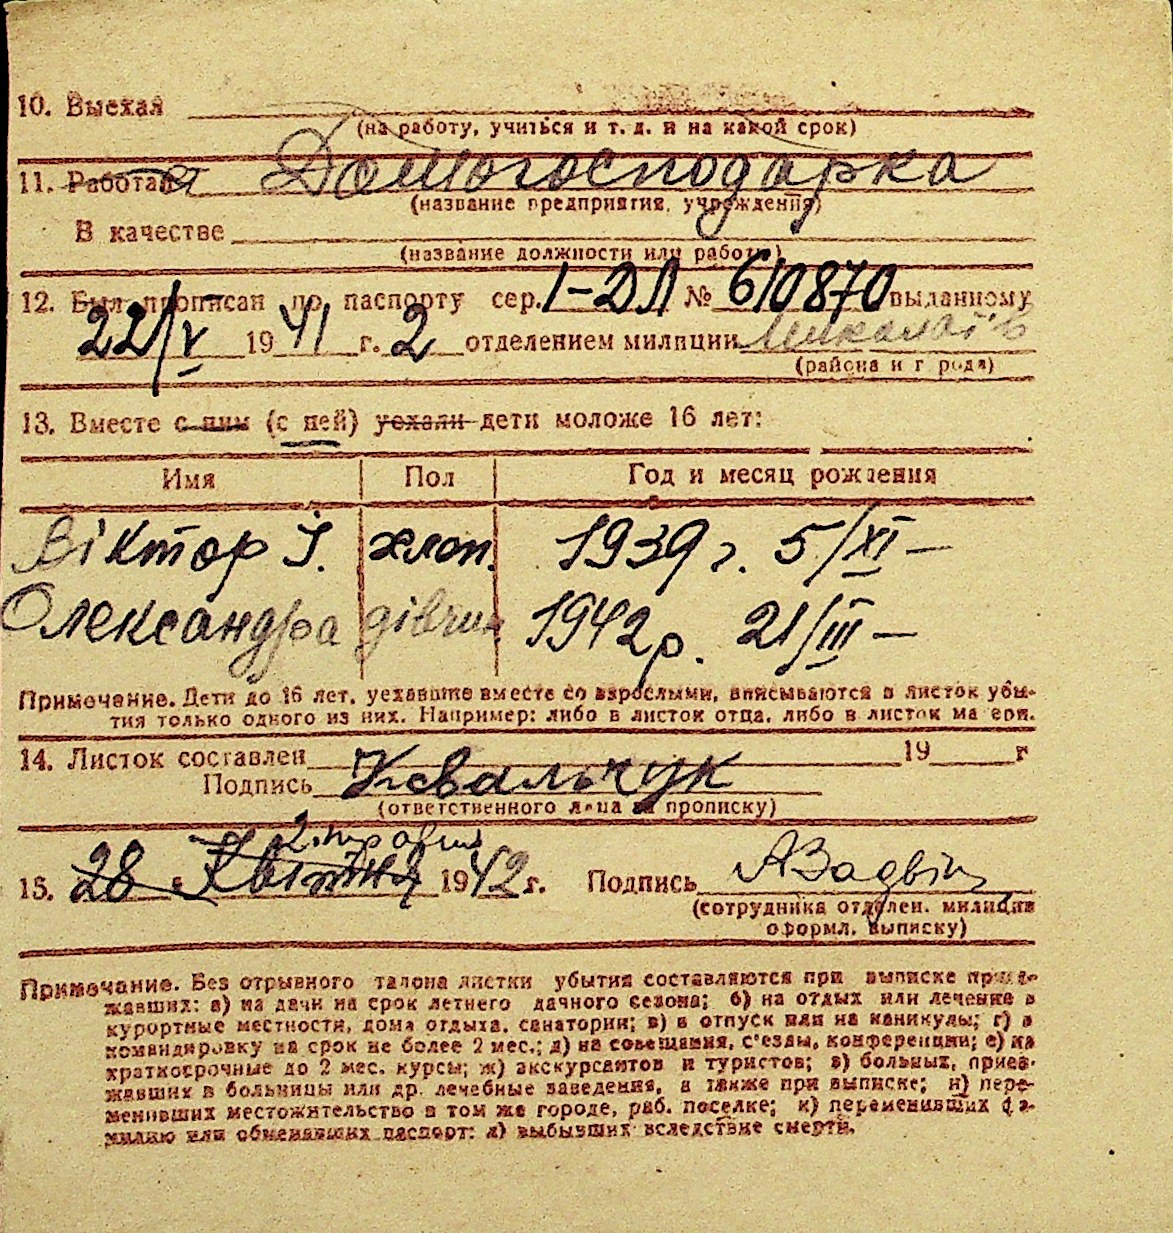 10. Выехал
(на работу, учиться и т. д. и на какой срок)
11. Работал Домогосподарка
(название предприятия, учреждения)
В качестве
(название должности или работы)
12. Был прописан по паспорту сер. I-ДЛ № 610870 выданному
22/V 1941 г. 2 отделением милиции Миколаїв
(района и г рода)
13. Вместе с ним (с ней) уехали дети моложе 16 лет:
Имя Пол Год и месяц рождения
Віктор І. хлоп. 1939 г. 5/XI –
Олександра дівчин 1942 р. 21/III –
Примечание. Дети до 16 лет, уехавшие вместе со взрослыми, вписываются в листок убы-
тия только одного из них. Например: либо в листок отца, либо в листок ма ери.
14. Листок составлен 19 г
Подпись Ковальчук
(ответственного лица за прописку)
2. травня
15. 28 Квітня 1942 г. Подпись
(сотрудника отделен. милиции
оформл. выписку)
Примечание. Без отрывного талона листки убытия составляются при выписке приез-
жавших: а) на дачи на срок летнего дачного сезона; б) на отдых или лечение в
курортные местности, дома отдыха, санатории; в) в отпуск или на каникулы; г) в
командировку на срок не более 2 мес.; д) на совещания, с'езды, конференции; е) на
краткосрочные до 2 мес. курсы; ж) экскурсантов и туристов; з) больных, приез-
жавших в больницы или др. лечебные заведения, а также при выписке; и) пере-
менивших местожительство в том же городе, раб. поселке; к) переменивших фа-
милию или обменявших паспорт; л) выбывших вследствие смерти.